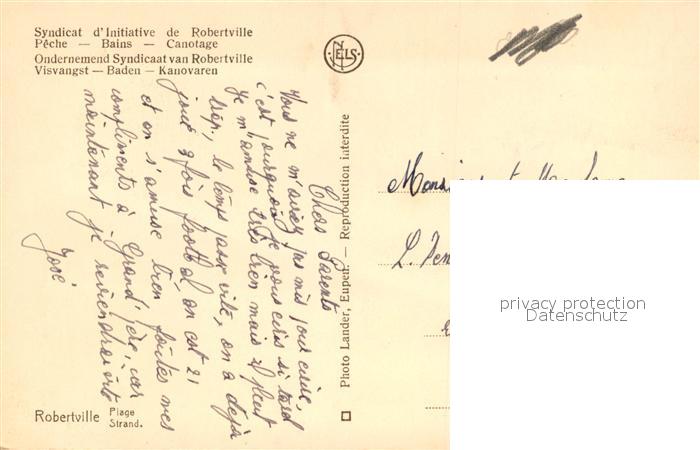 Syndicat d'Initiative de Robertville
Pêche — Bains — Canotage
Ondernemend Syndicaat van Robertville
Visvangst — Baden — Kanovaren
NELS
Chers Parents
Vous ne m'aviez pas mis pour écrire,
c'est pourquoi je vous écris si tard
Je m'amuse très bien mais il pleut
trop, le temps passe vite, on a déjà
joué 2 fois football on est 21
et on s'amuse bien faites mes
compliments à Grand'père, car
maintenant je reviendrai vite
José
Robertville Plage
Strand.
Photo Lander, Eupen. — Reproduction interdite
Monsieur et Madame
L.
privacy protection
Datenschutz